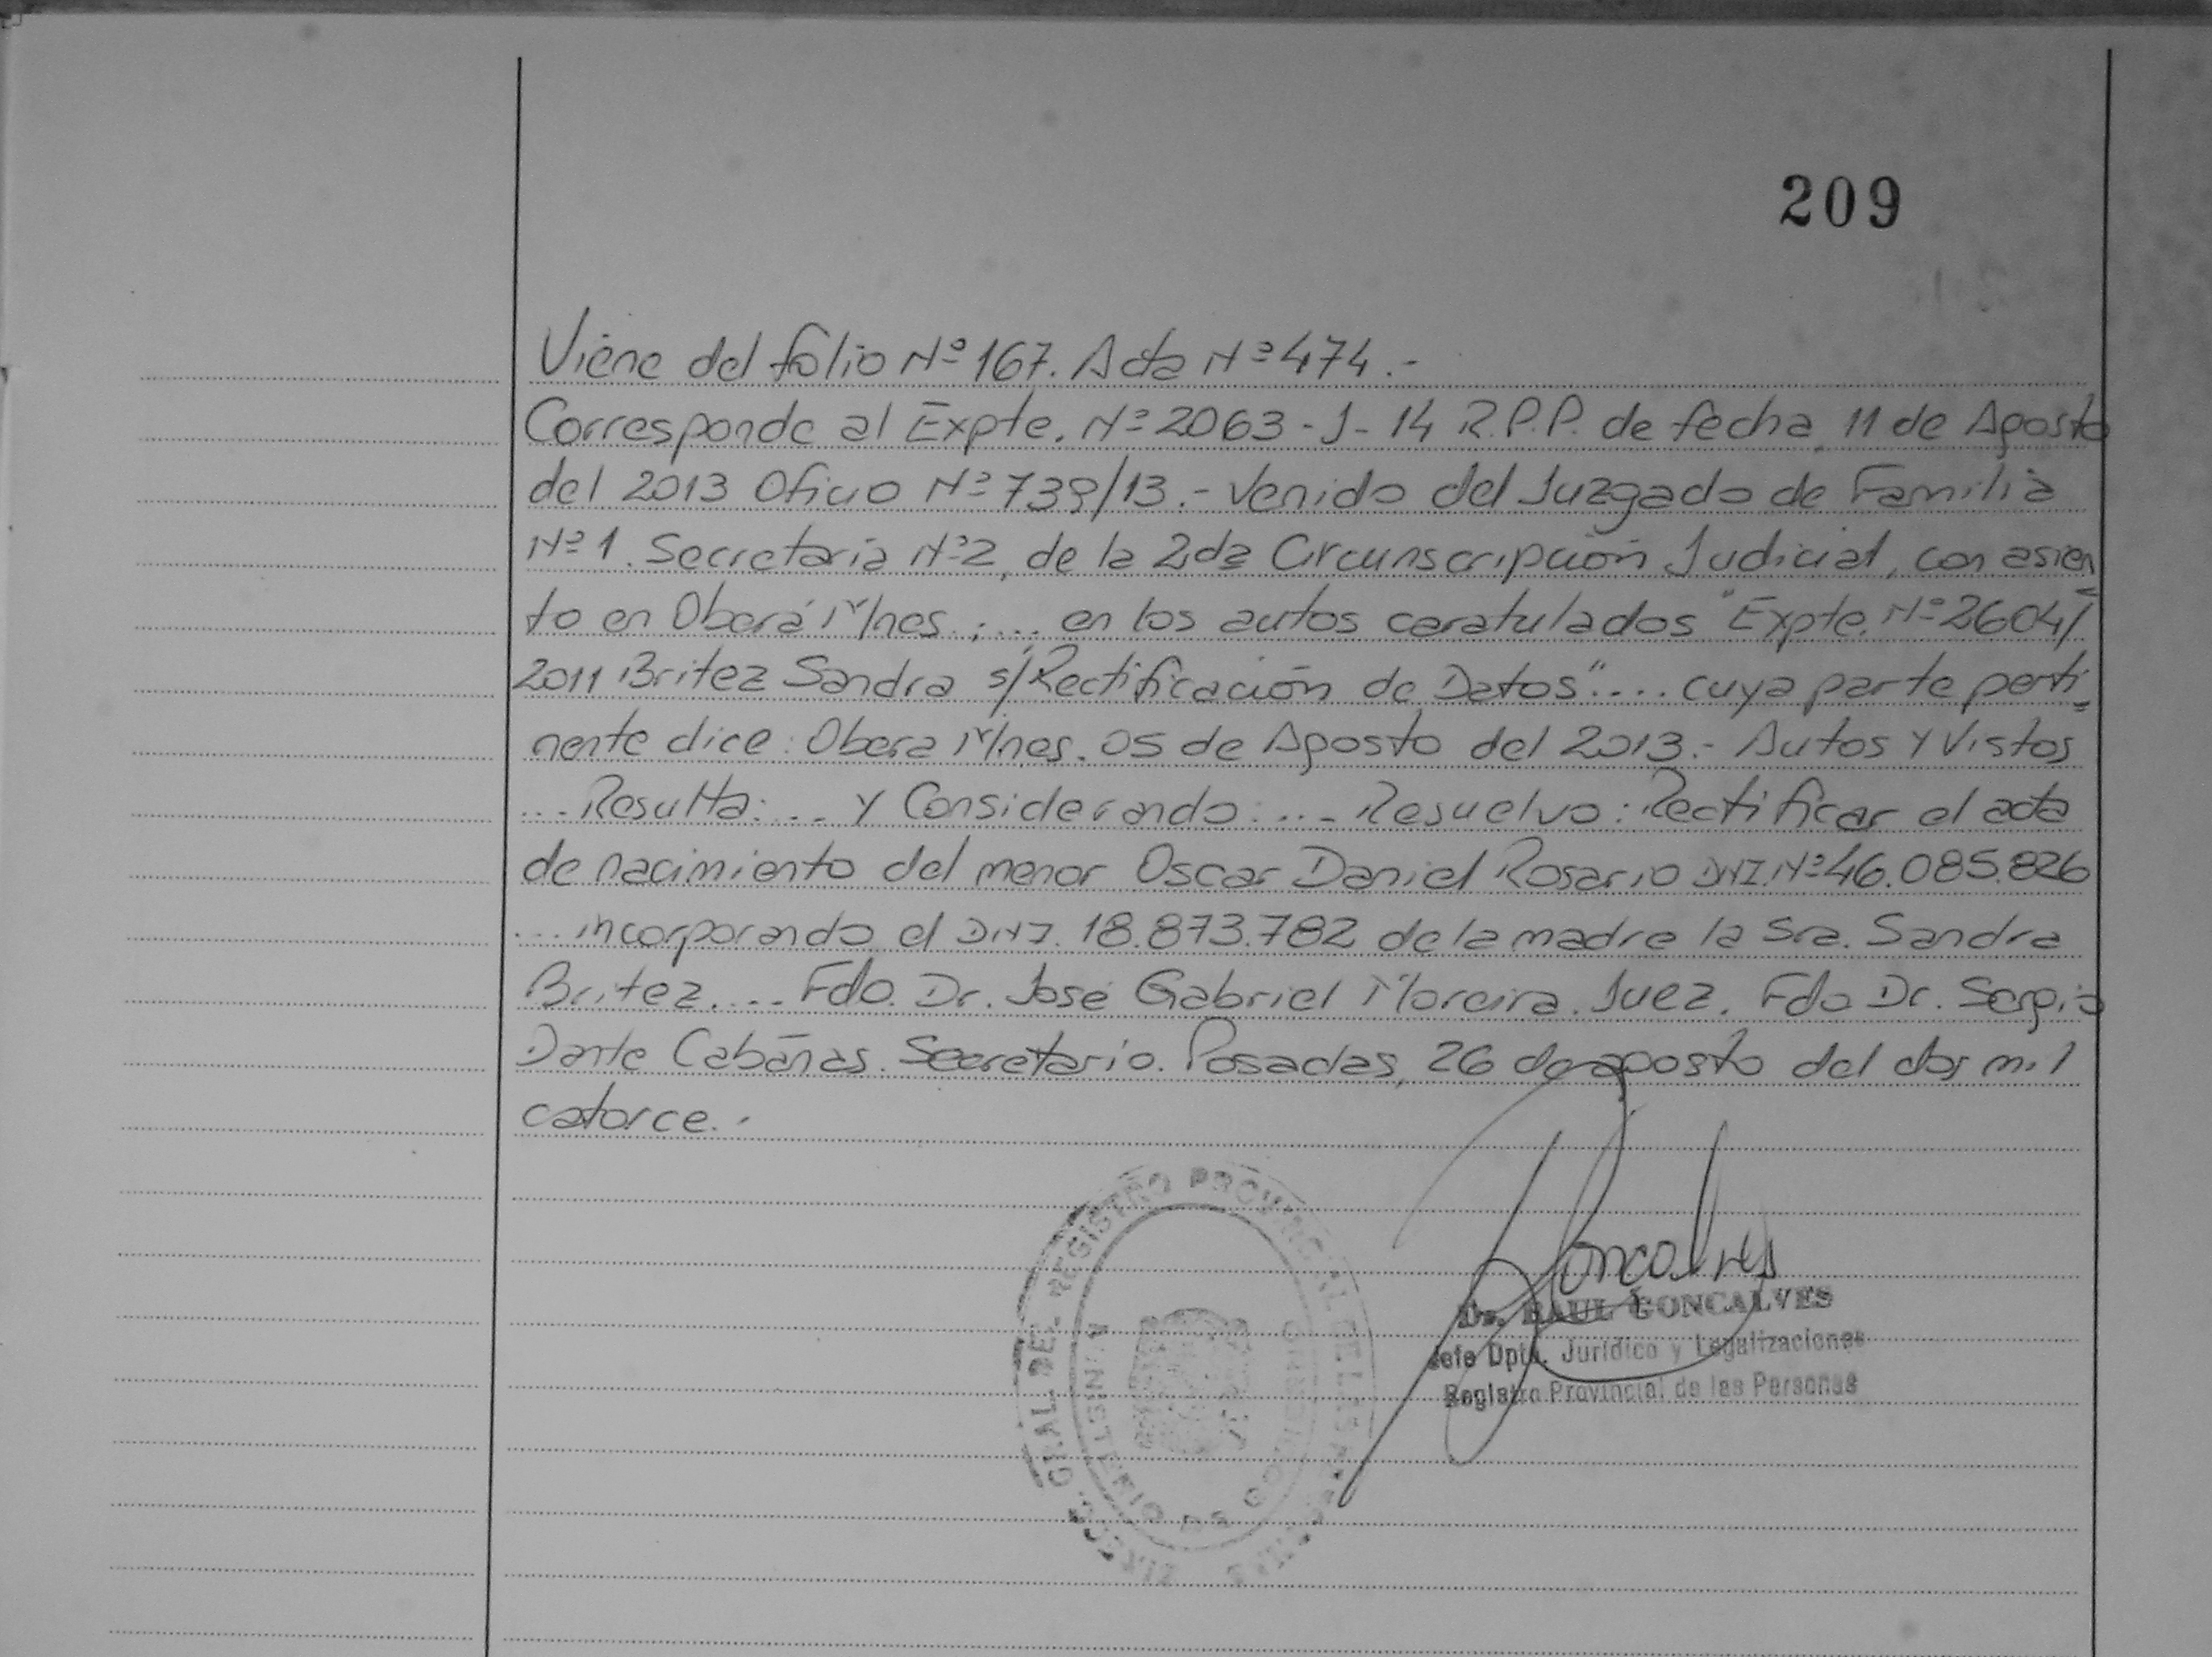 209
Viene del folio Nº 167. Acta Nº 474.-
Corresponde al Expte. Nº 2063-J-14 R.P.P. de fecha 11 de Agosto
del 2013 Oficio Nº 739/13.- Venido del Juzgado de Familia
Nº 1. Secretaria Nº 2, de la 2da Circunscripción Judicial, con asien
to en Oberá M/nes.;... en los autos caratulados "Expte. Nº 2604/
2011 Britez Sandra s/Rectificación de Datos".... cuya parte perti
nente dice: Obera M/nes. 05 de Agosto del 2013.- Autos y Vistos
...Resulta:... y Considerando:.... Resuelvo: Rectificar el acta
de nacimiento del menor Oscar Daniel Rosario DNI. Nº 46.085.826
...incorporando el DNI. 18.873.782 de la madre la Sra. Sandra
Britez.... Fdo. Dr. José Gabriel Moreira. Juez. Fdo Dr. Sergio
Dante Cabañas. Secretario. Posadas, 26 de agosto del dos mil
catorce.-
Goncalves
Dr. RAUL GONCALVES
Jefe Dpto. Jurídico y Legalizaciones
Registro Provincial de las Personas
GRAL. DEL REGISTRO PROVINCIAL DE LAS
MINISTERIO DE GOBIERNO